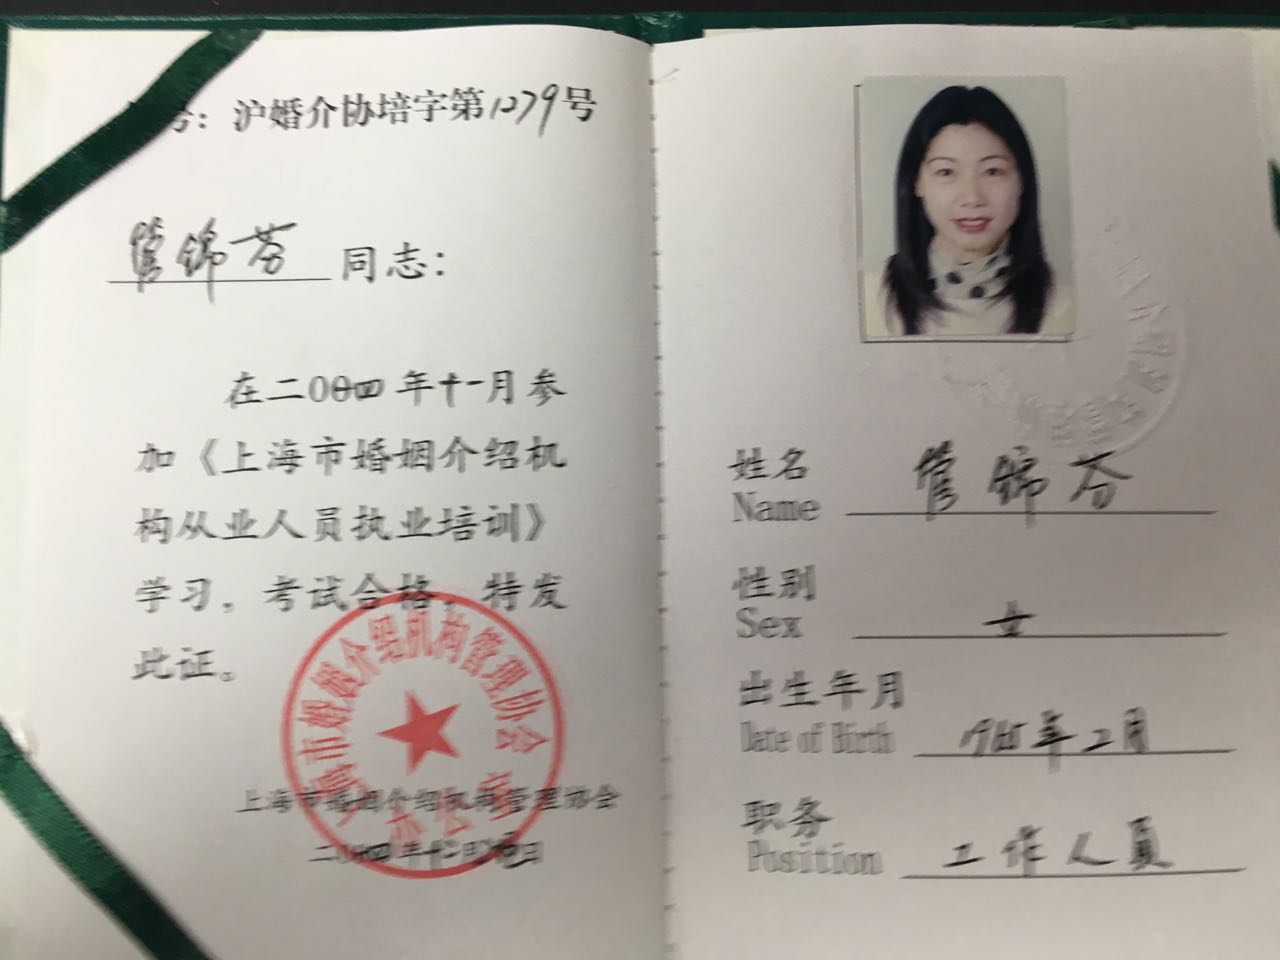 号：沪婚介协培字第1279号
管锦芬 同志：
在二00四年十一月参
加《上海市婚姻介绍机
构从业人员执业培训》
学习，考试合格，特发
此证。
上海市婚姻介绍机构管理协会
办公室
上海市婚姻介绍机构管理协会
二00四年十二月 日
姓名 管锦芬
Name
性别
Sex 女
出生年月
Date of Birth 年二月
职务
Position 工作人员